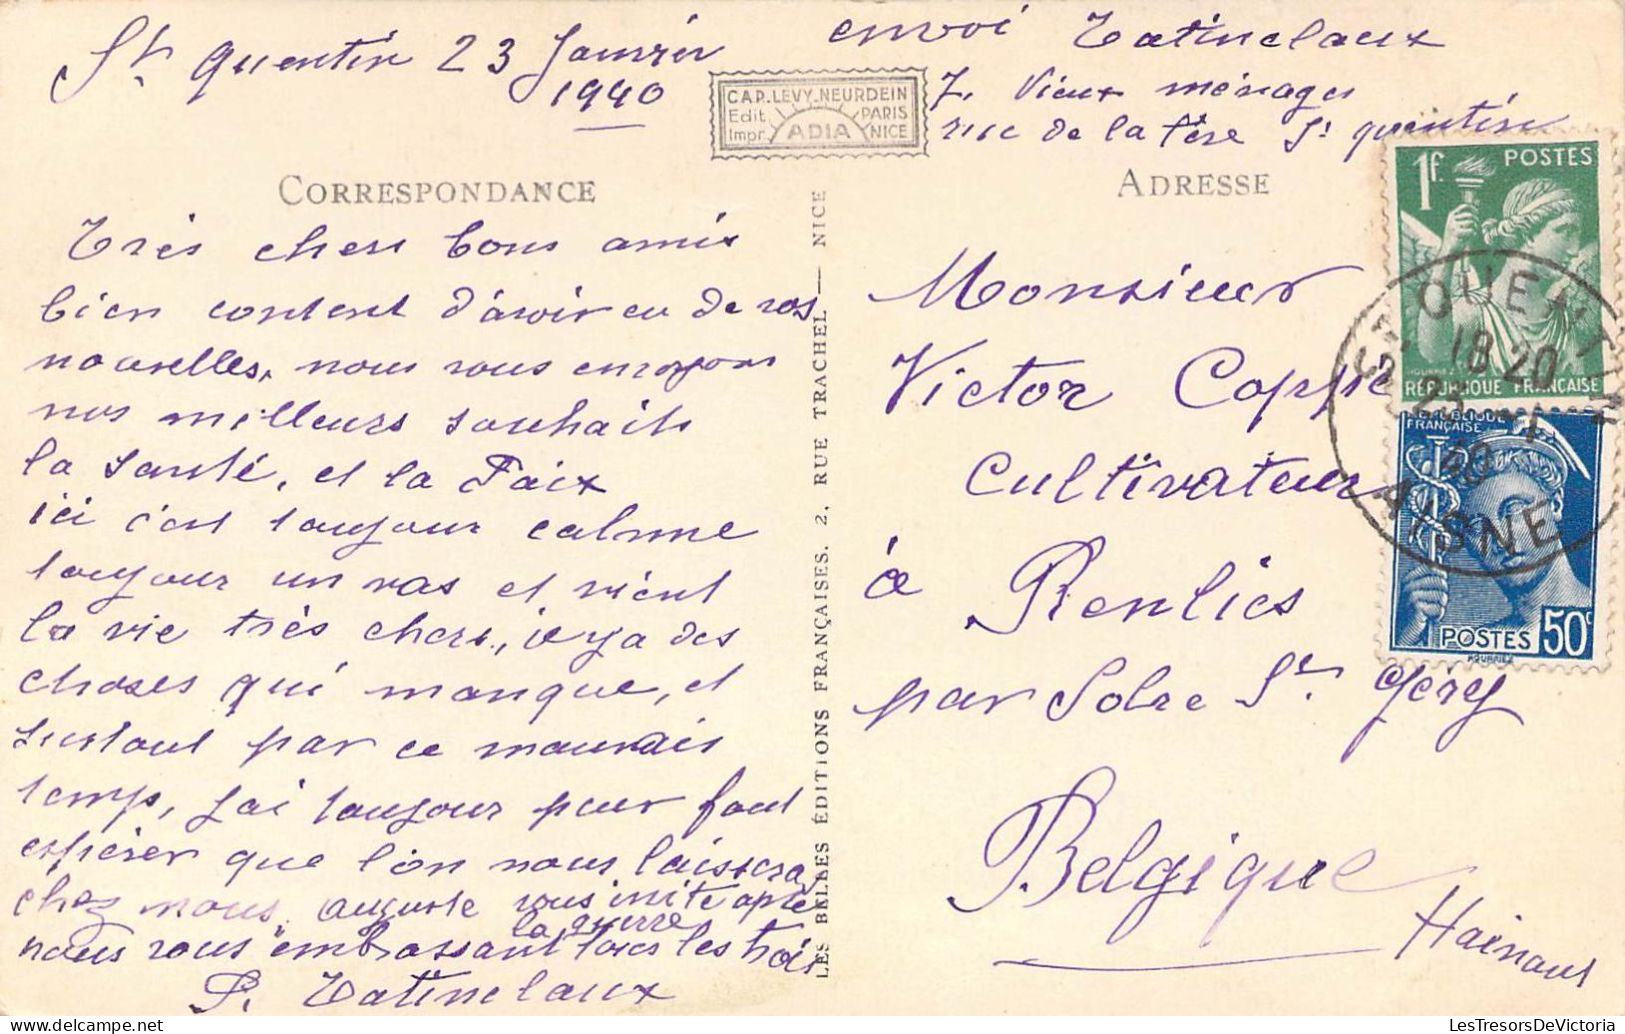 St quentin 23 Janvier
1940
envoi Tatinclaux
7. Vieux ménages
rue de la fère St quentin
CAP. LEVY-NEURDEIN
Edit. PARIS
Impr. ADIA NICE
CORRESPONDANCE
Très chers bons amis
bien content d'avoir eu de vos
nouvelles, nous vous envoyons
nos meilleurs souhaits
la santé, et la Paix
ici c'est toujour calme
toujour un vas et vient
la vie très chere, il y a des
choses qui manque, et
surtout par ce mauvais
temps, j'ai toujour peur faut
espérer que l'on nous laissera
chez nous. auguste vous inite apres
la guerre
nous vous embrassant tous les trois
P. Tatinclaux
LES BELLES ÉDITIONS FRANÇAISES. 2, RUE TRACHEL — NICE
ADRESSE
Monsieur
Victor Coppe
Cultivateur
à Renlies
par Solre St. Géry
Belgique
Hainaut
1f. POSTES
RÉPUBLIQUE FRANÇAISE
RÉPUBLIQUE
FRANÇAISE
POSTES 50c
ST QUENTIN
18 20
23 -1
40
AISNE
LesTresorsDeVictoria.com